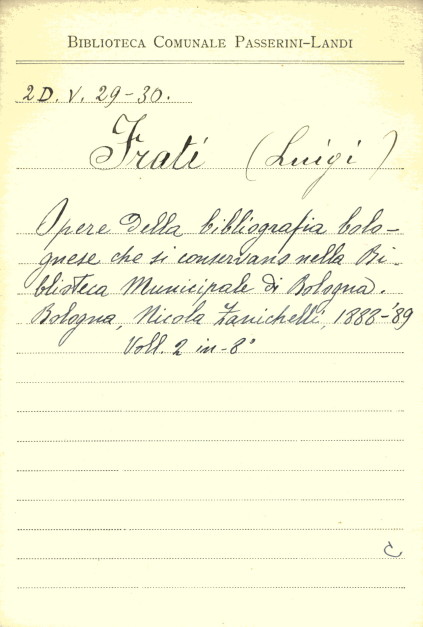 BIBLIOTECA COMUNALE PASSERINI-LANDI
2D. V. 29-30.
Frati (Luigi)
Opere della bibliografia bolo-
gnese che si conservano nella Bi-
blioteca Municipale di Bologna.
Bologna, Nicola Zanichelli, 1888-'89
Voll. 2 in-8°
C